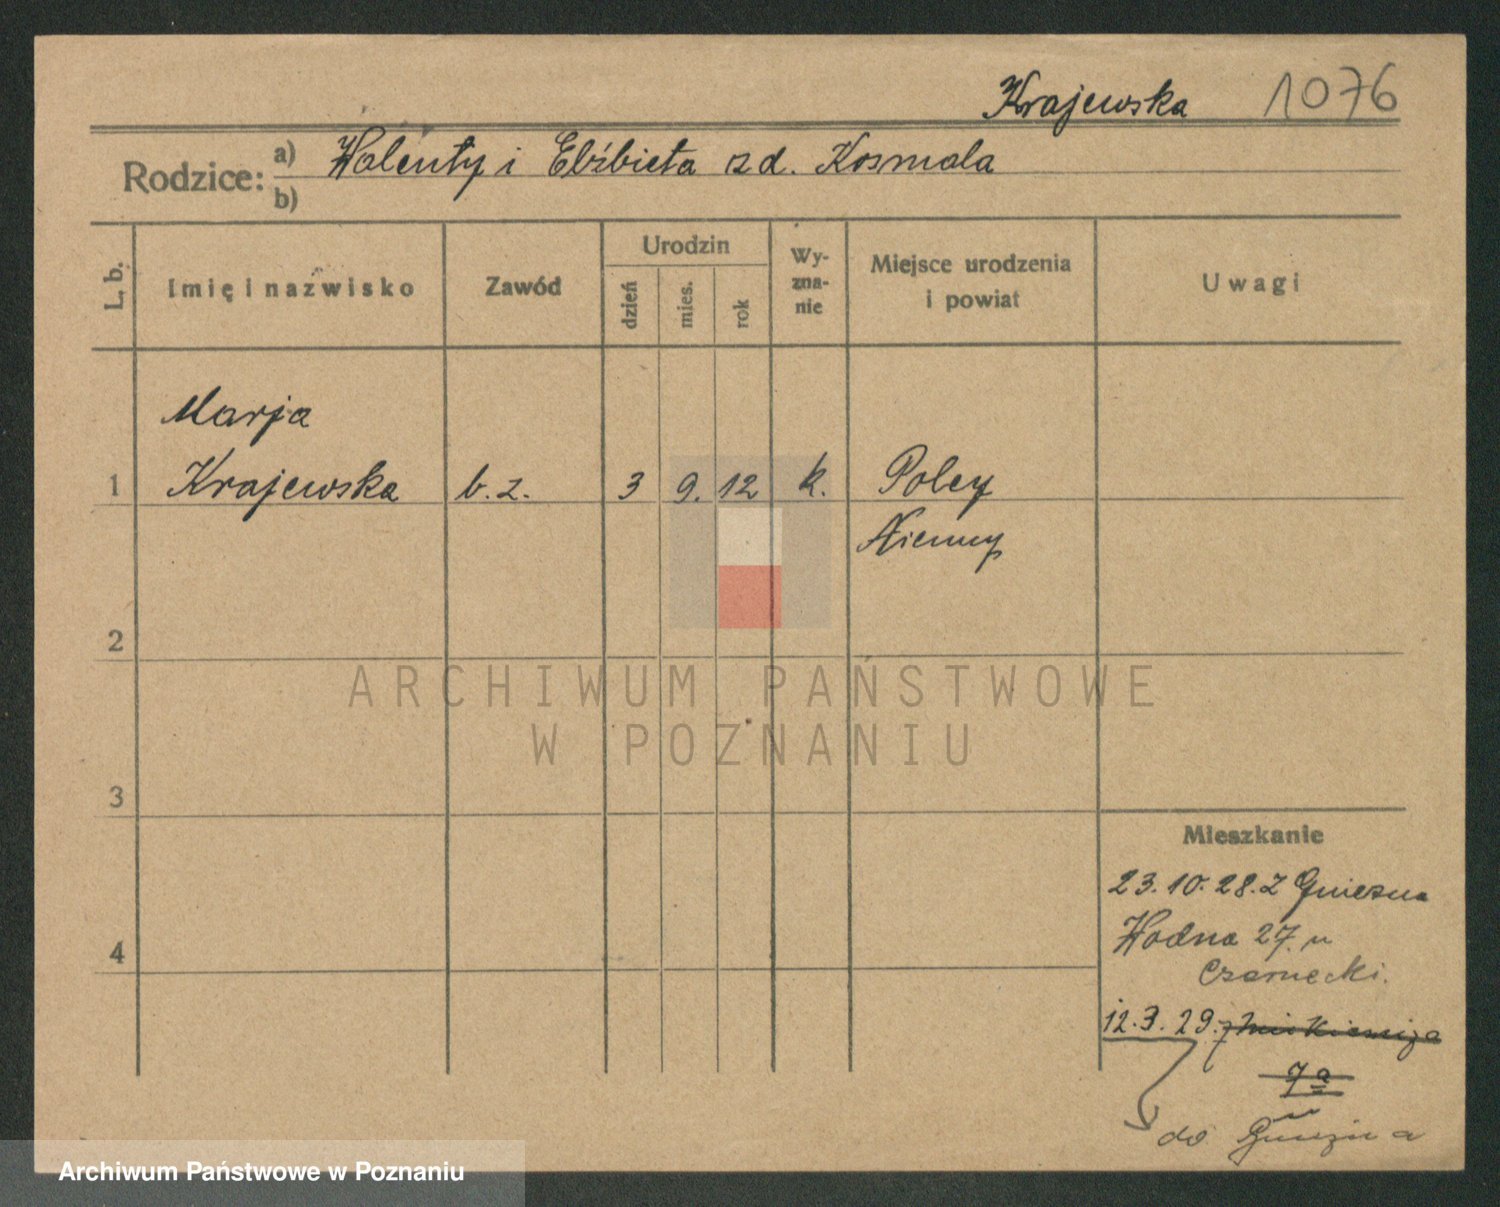 Krajewska 1076
Rodzice: a) Walenty i Elżbieta z d. Kosmala
b)
L. b.
Imię i nazwisko
Zawód
Urodzin
dzień
mies.
rok
Wy-
zna-
nie
Miejsce urodzenia
i powiat
Uwagi
Marja
1 Krajewska b. z. 3 9. 12 k. Poley
Niemcy
2
ARCHIWUM PAŃSTWOWE
W POZNANIU
3
Mieszkanie
23.10.28. z Gniezna
Wodna 27. u
Czarnecki.
4
12.3.29.
7a
do Gniezna
Archiwum Państwowe w Poznaniu